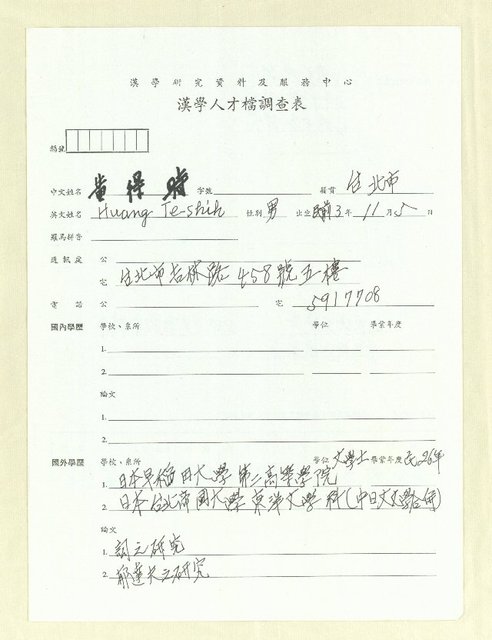 漢學研究資料及服務中心
漢學人才檔調查表
編號
中文姓名 黃得時 字號 籍貫 台北市
英文姓名 Huang Te-shih 性別 男 出生 民前3年 11月5日
羅馬拼音
通訊處 公
宅 台北市吉林路458號五樓
電話 公 宅 5917708
國內學歷 學校、系所 學位 畢業年度
1.
2.
論文
1.
2.
國外學歷 學校、系所 學位 文學士 畢業年度 民.26年
1. 日本早稻田大學第二高等學院
2. 日本台北帝國大學東洋文學科(中日文學
論文
1. 詞之研究
2. 郁達夫之研究